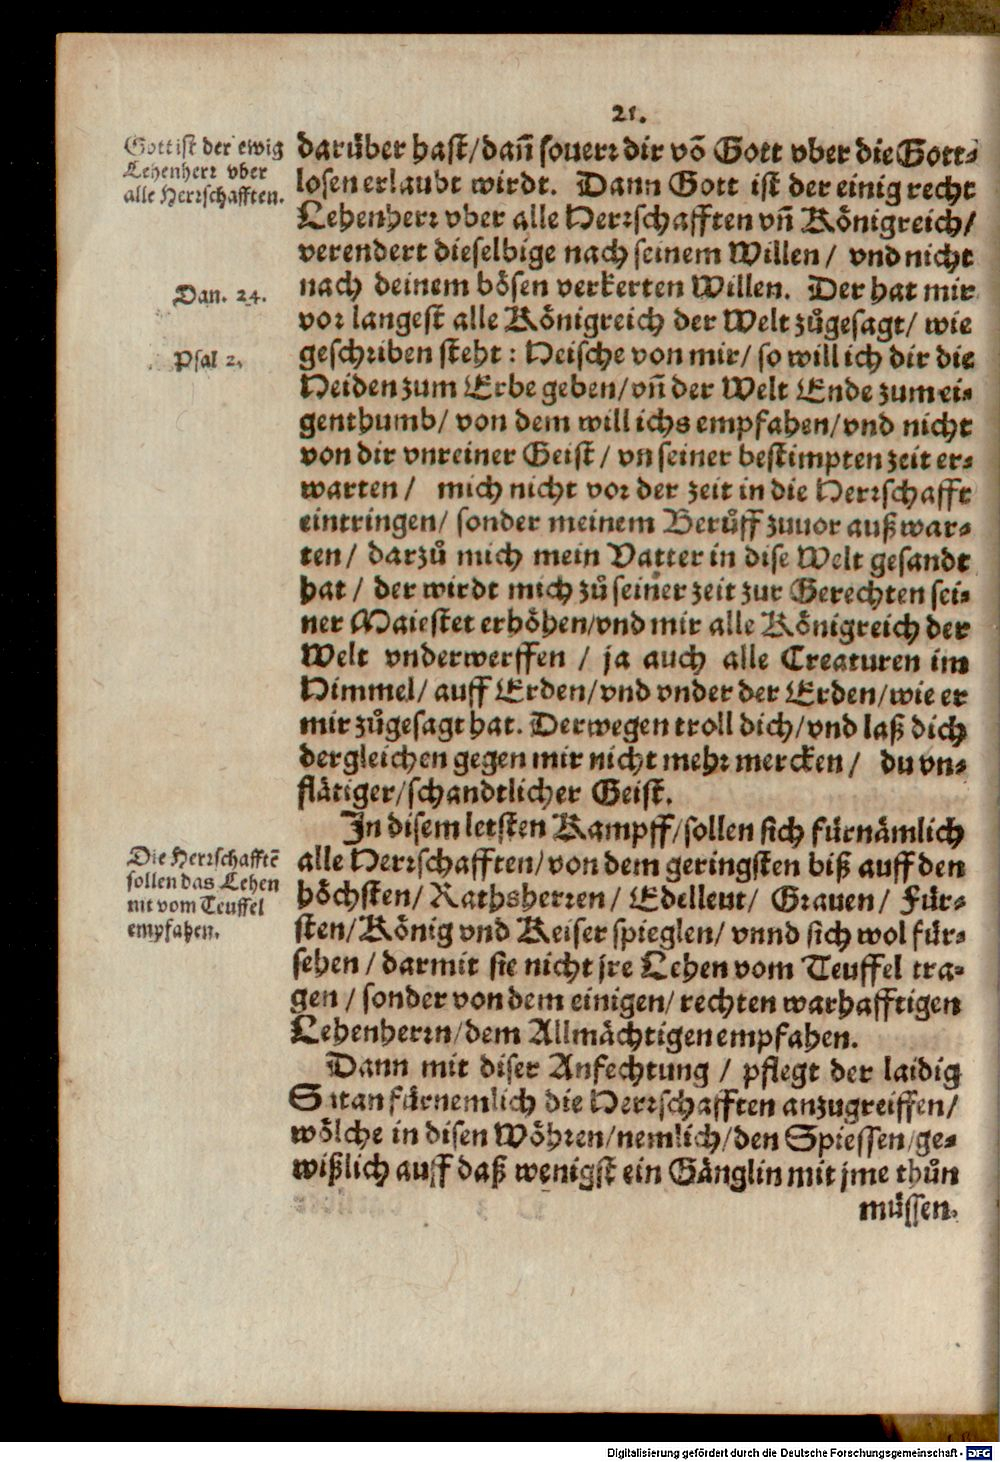 21.
Gott ist der ewig
Lehenherr vber
alle Herrschafften.
darüber hast/dañ souerr dir võ Gott vber die Gott-
losen erlaubt wirdt. Dann Gott ist der einig recht
Lehenherr vber alle Herrschafften vñ Königreich/
verendert dieselbige nach seinem Willen/ vnd nicht
Dan. 24.
nach deinem bösen verkerten Willen. Der hat mir
vor langest alle Königreich der Welt zůgesagt/ wie
Psal 2.
geschriben steht: Heische von mir/ so will ich dir die
Heiden zum Erbe geben/vñ der Welt Ende zum ei-
genthumb/ von dem will ichs empfahen/vnd nicht
von dir vnreiner Geist/ vn seiner bestimpten zeit er-
warten/ mich nicht vor der zeit in die Herrschafft
eintringen/ sonder meinem Berůff zuuor außwar-
ten/ darzů mich mein Vatter in dise Welt gesandt
hat/ der wirdt mich zů seiner zeit zur Gerechten sei-
ner Maiestet erhöhen/vnd mir alle Königreich der
Welt vnderwerffen / ja auch alle Creaturen im
Himmel/ auff Erden/vnd vnder der Erden/wie er
mir zůgesagt hat. Derwegen troll dich/vnd laß dich
dergleichen gegen mir nicht mehr mercken/ du vn-
flätiger/schandtlicher Geist.
In disem letsten Kampff/sollen sich fürnämlich
Die Herrschafftẽ
sollen das Lehen
nit vom Teuffel
empfahen.
alle Herrschafften/von dem geringsten biß auff den
höchsten/ Rathsherren/ Edelleut/ Grauen/ Für-
sten/König vnd Keiser spieglen/ vnnd sich wol für-
sehen/darmit sie nicht jre Lehen vom Teuffel tra-
gen/ sonder von dem einigen/ rechten warhafftigen
Lehenherrn/dem Allmächtigen empfahen.
Dann mit diser Anfechtung / pflegt der laidig
Satan fürnemlich die Herrschafften anzugreiffen/
wölche in disen Wöhren/nemlich/den Spiessen/ge-
wißlich auff daß wenigst ein Gänglin mit jme thůn
müssen.
Digitalisierung gefördert durch die Deutsche Forschungsgemeinschaft - DFG